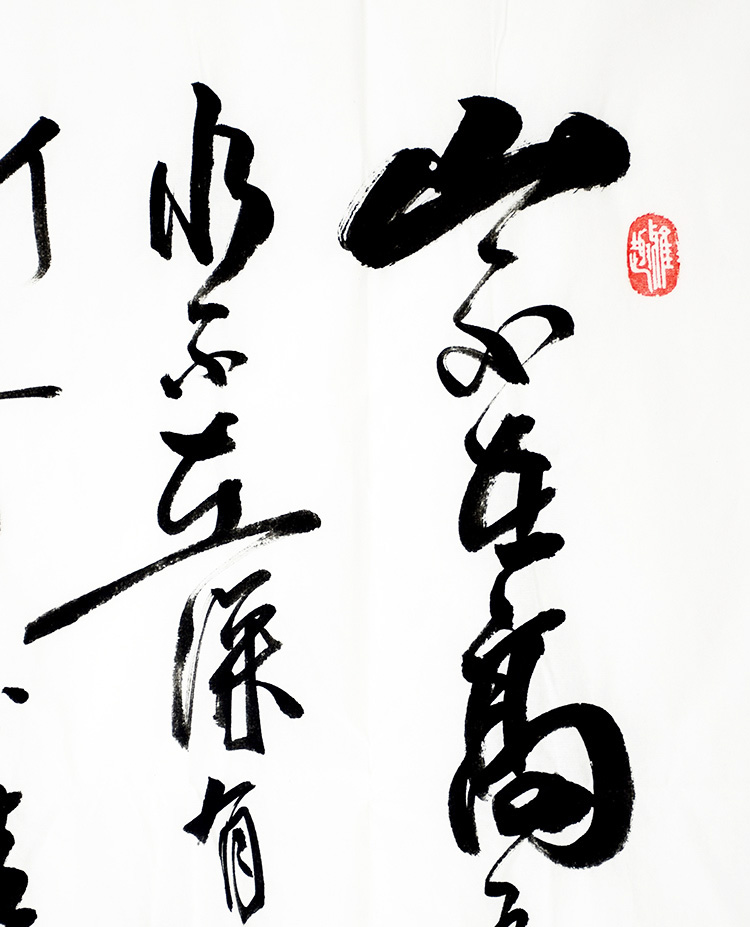 山不在高
水不在深有